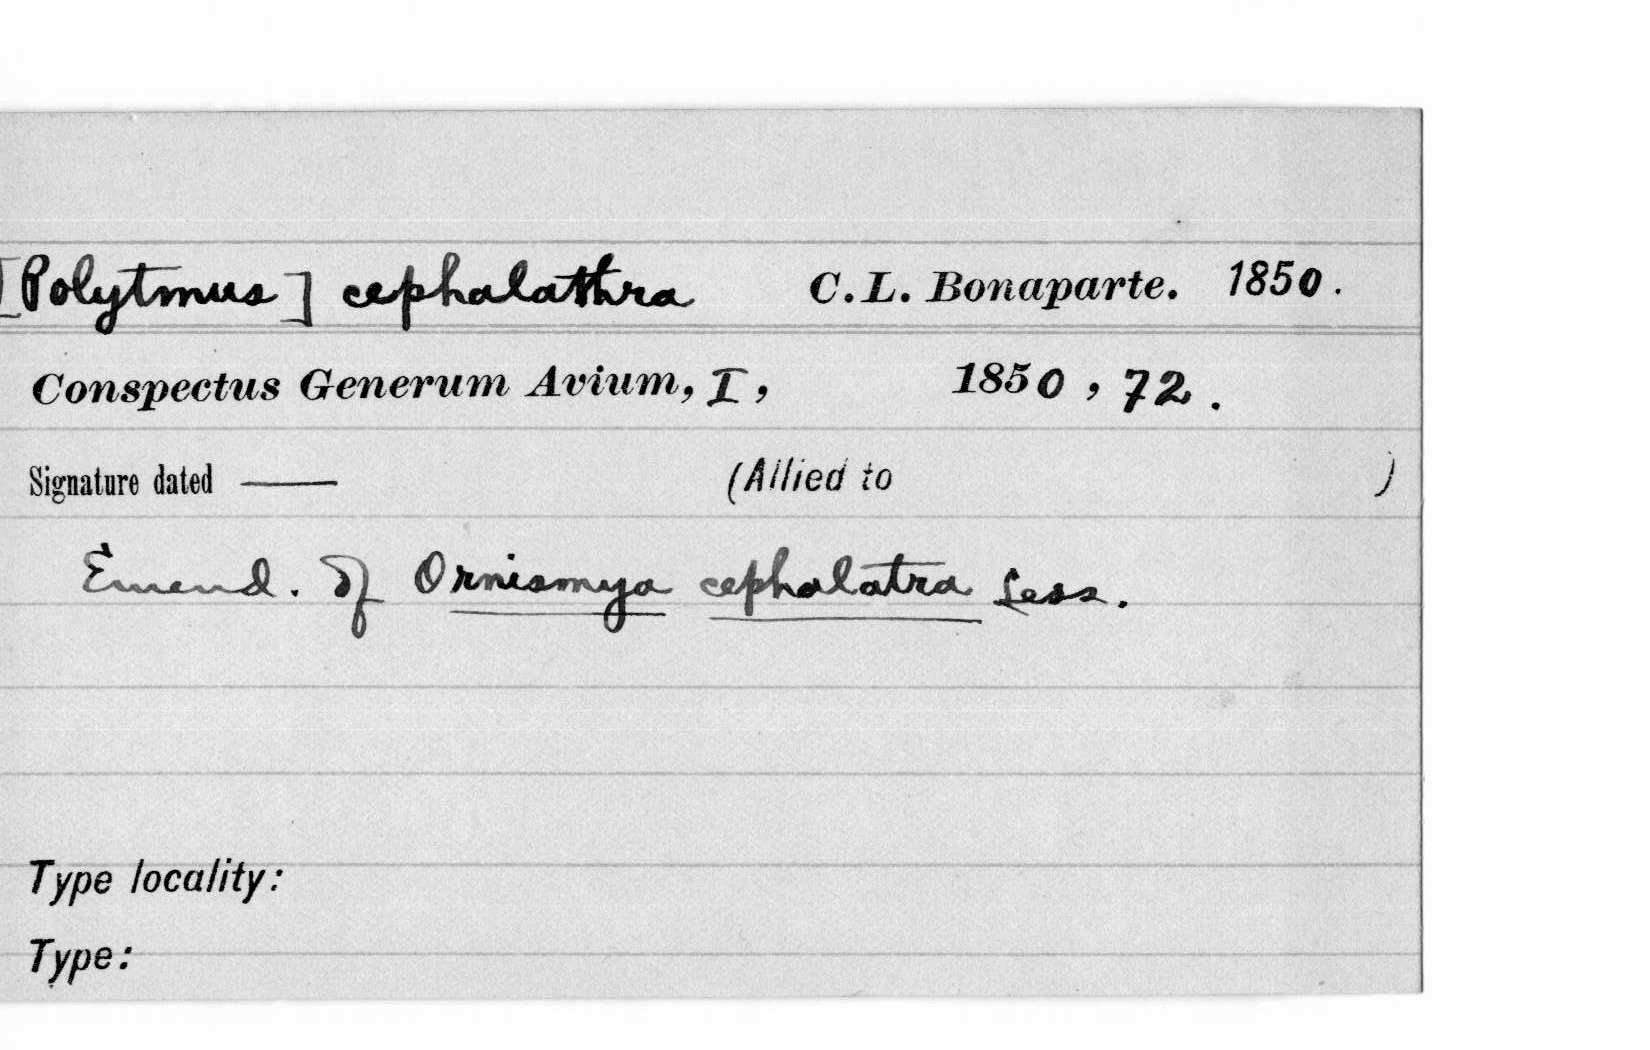 [Polytmus] cephalathra C.L. Bonaparte. 1850.
Conspectus Generum Avium, I, 1850, 72.
Signature dated —— (Allied to )
Emend. of Ornismya cephalatra Less.
Type locality:
Type: